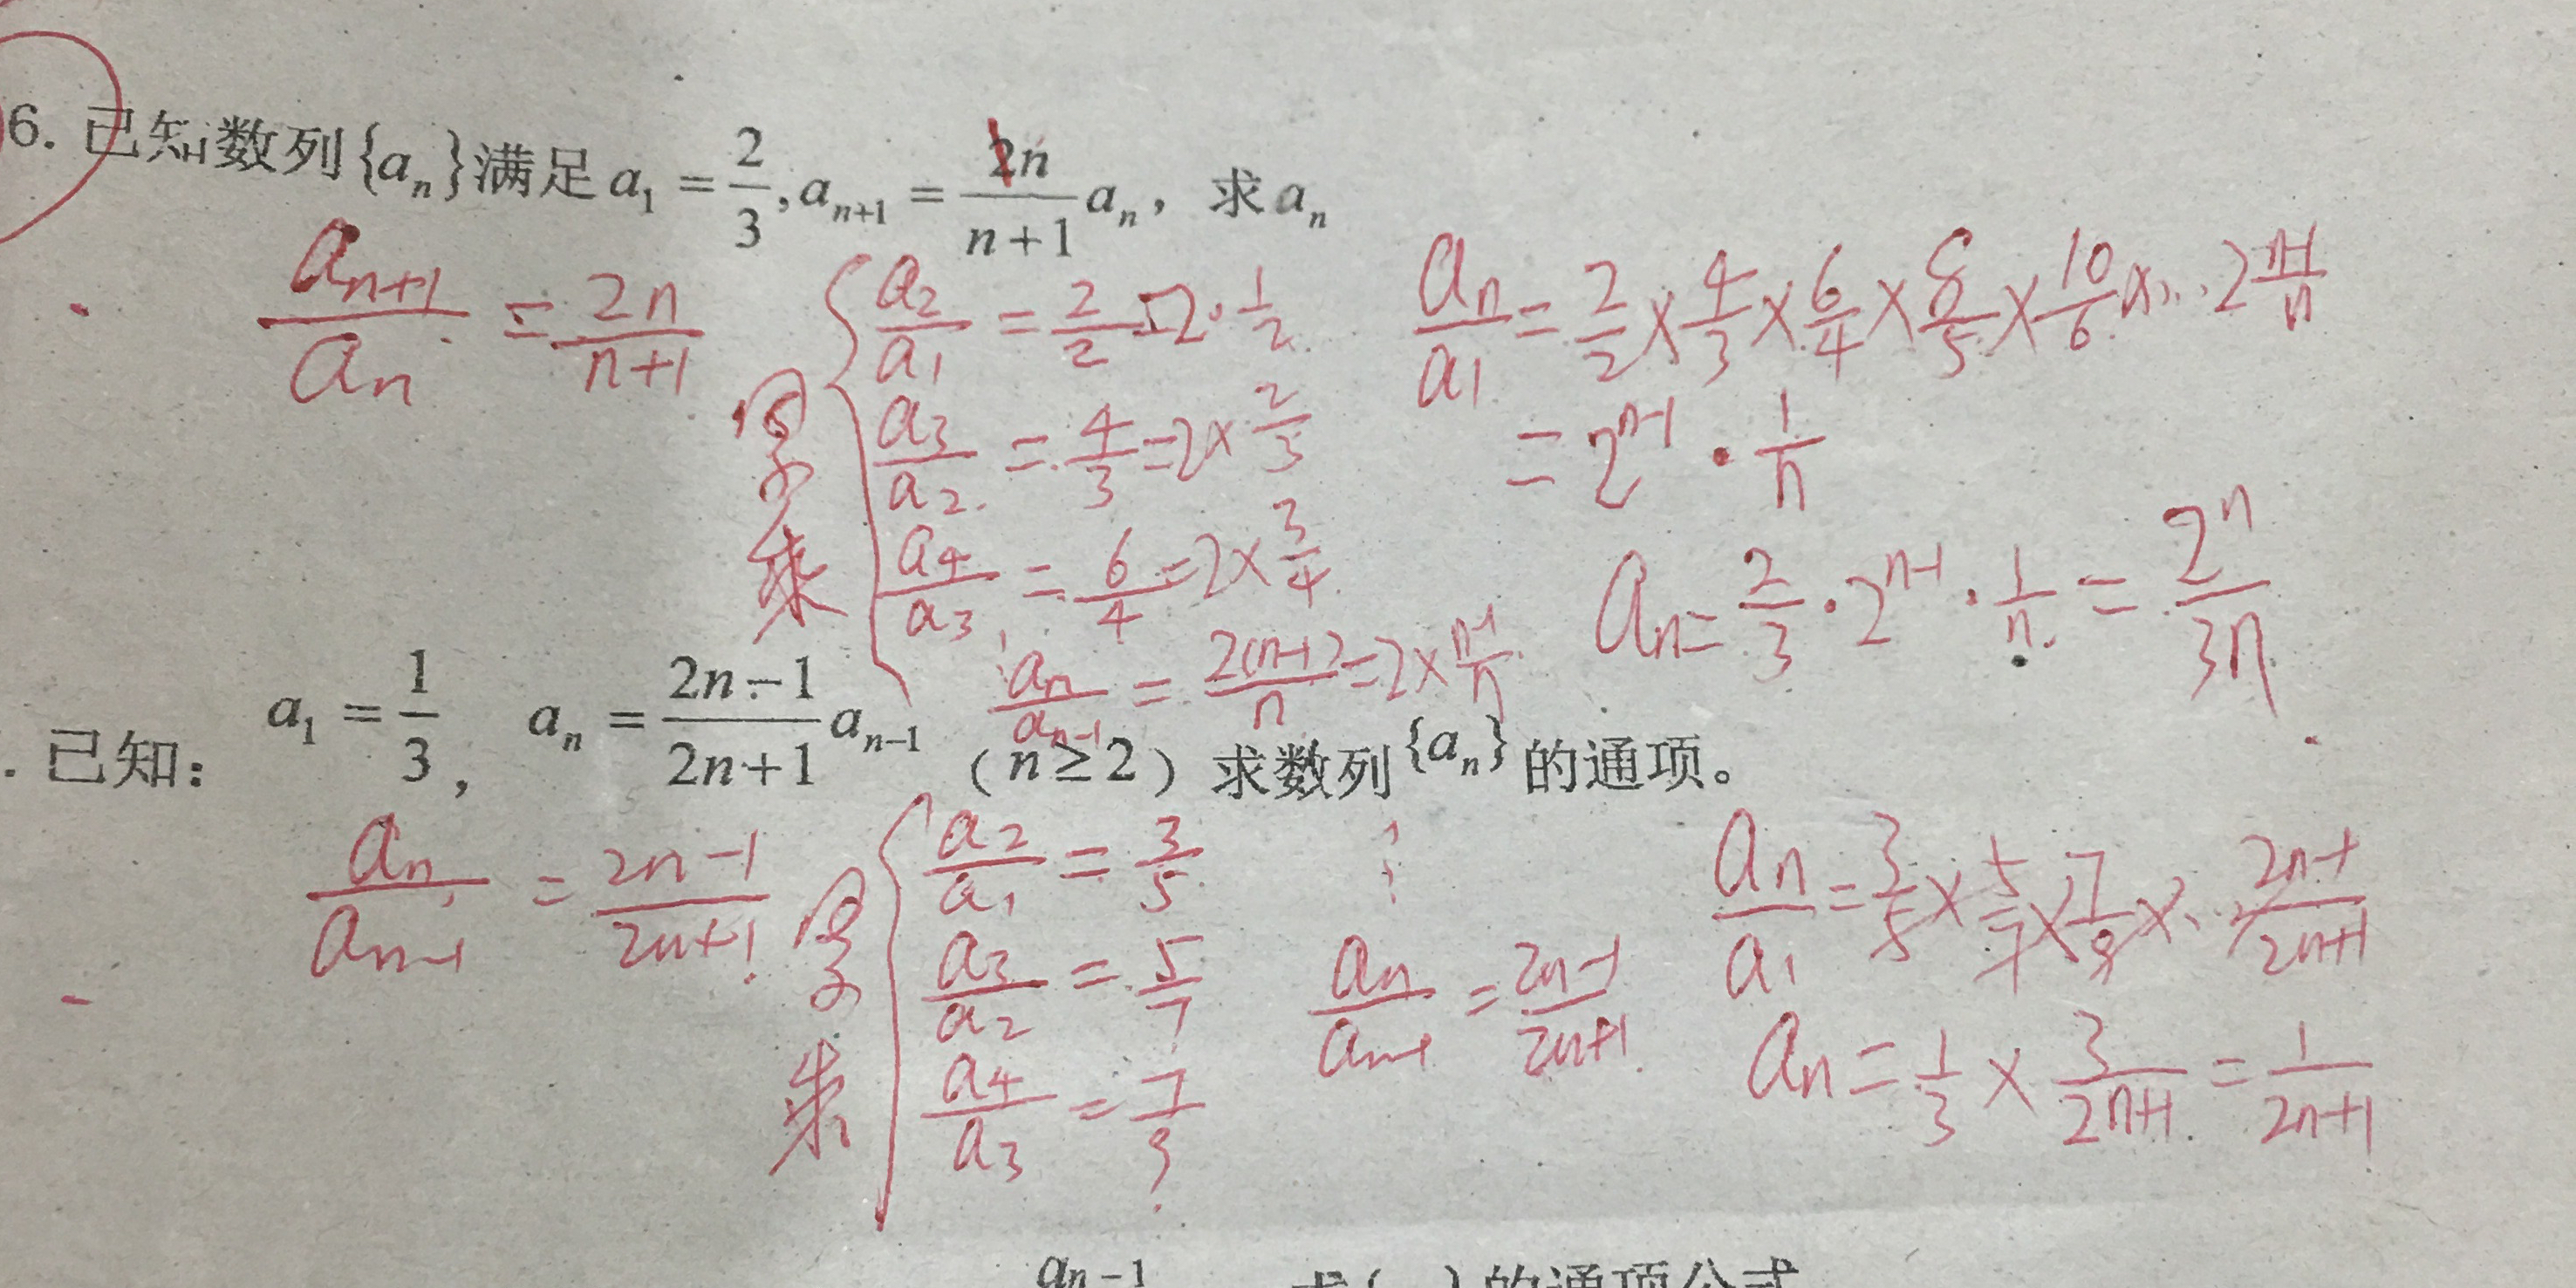 6. 已知数列{aₙ}满足a₁ = 2/3, aₙ₊₁ = 2n/(n+1) aₙ, 求aₙ
aₙ₊₁/aₙ = 2n/(n+1)
累乘
a₂/a₁ = 2/2 = 2·1/2
a₃/a₂ = 4/3 = 2×2/3
a₄/a₃ = 6/4 = 2×3/4
aₙ/aₙ₋₁ = 2(n-1)/n = 2×(n-1)/n
aₙ/a₁ = 2/2 × 4/3 × 6/4 × 8/5 × 10/6 × ... 2 (n-1)/n
= 2ⁿ⁻¹ · 1/n
aₙ = 2/3 · 2ⁿ⁻¹ · 1/n = 2ⁿ/3n
. 已知: a₁ = 1/3, aₙ = (2n-1)/(2n+1) aₙ₋₁ (n≥2) 求数列{aₙ}的通项。
aₙ/aₙ₋₁ = (2n-1)/(2n+1)
累乘
a₂/a₁ = 3/5
a₃/a₂ = 5/7
a₄/a₃ = 7/9
⋮
aₙ/aₙ₋₁ = (2n-1)/(2n+1)
aₙ/a₁ = 3/5 × 5/7 × 7/9 × ... (2n-1)/(2n+1)
aₙ = 1/3 × 3/(2n+1) = 1/(2n+1)
aₙ₋₁
的通项公式